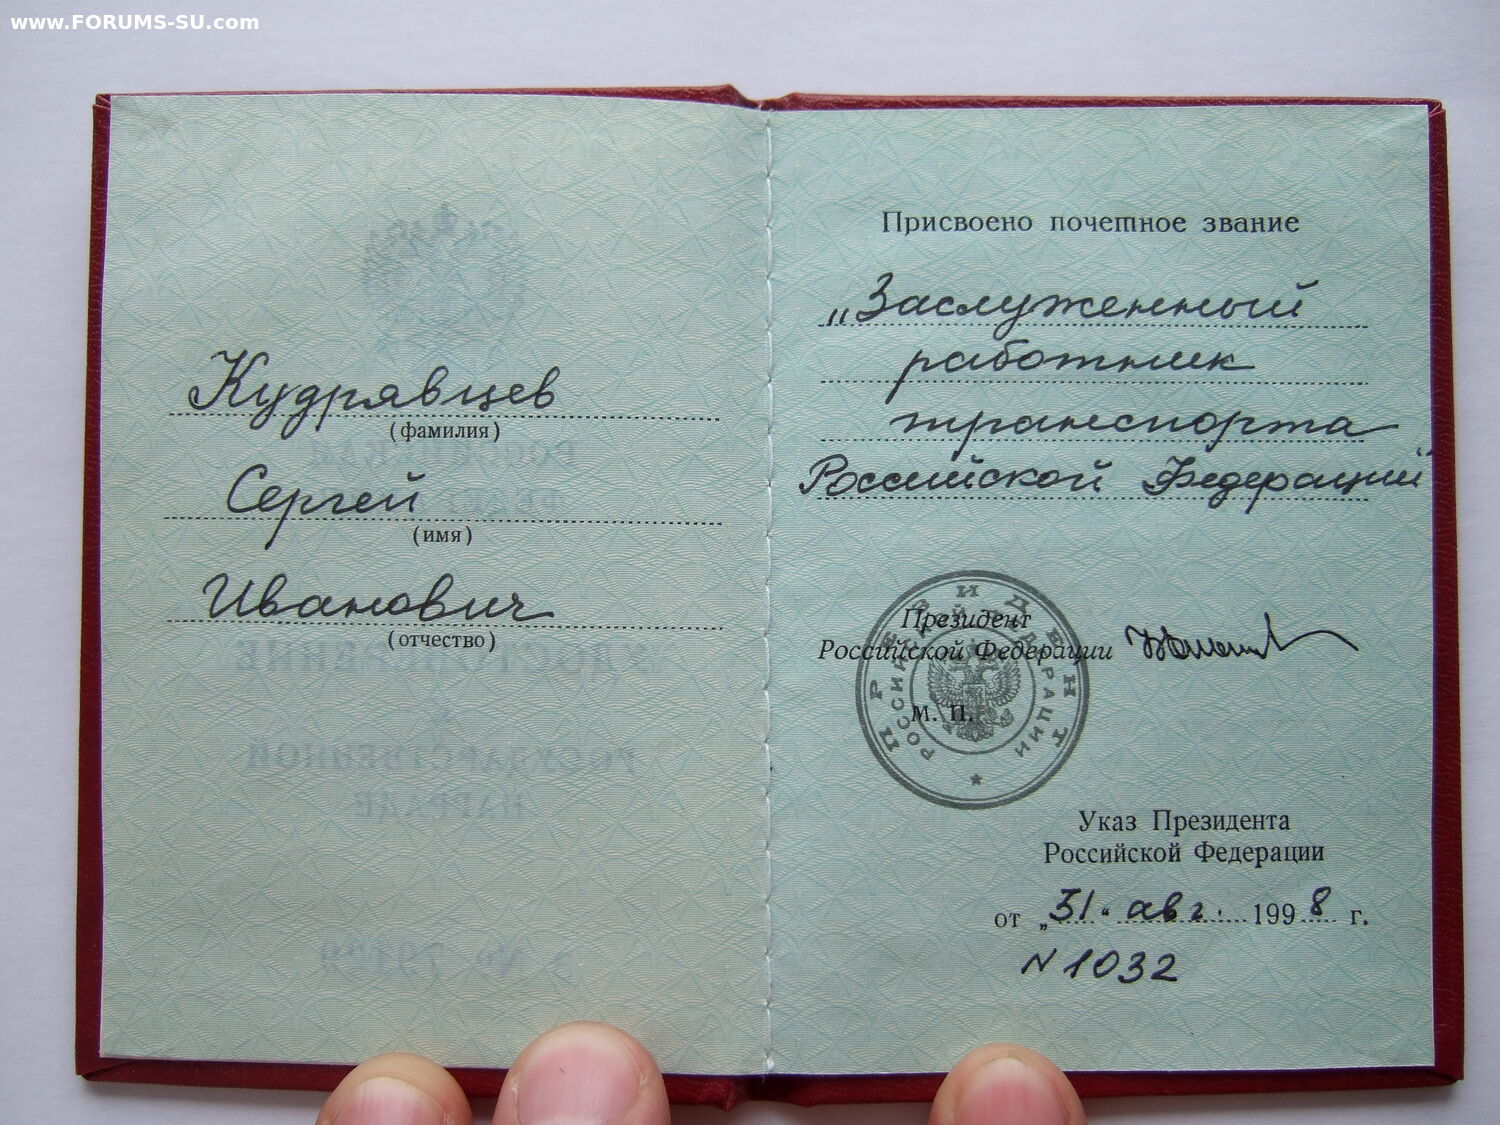 www.FORUMS-SU.com
Кудрявцев
(фамилия)
Сергей
(имя)
Иванович
(отчество)
Присвоено почетное звание
„Заслуженный
работник
транспорта
Российской Федерации“
Президент
Российской Федерации
М. П.
ПРЕЗИДЕНТ
РОССИЙСКОЙ ФЕДЕРАЦИИ
Указ Президента
Российской Федерации
от „31“ авг. 1998 г.
N 1032